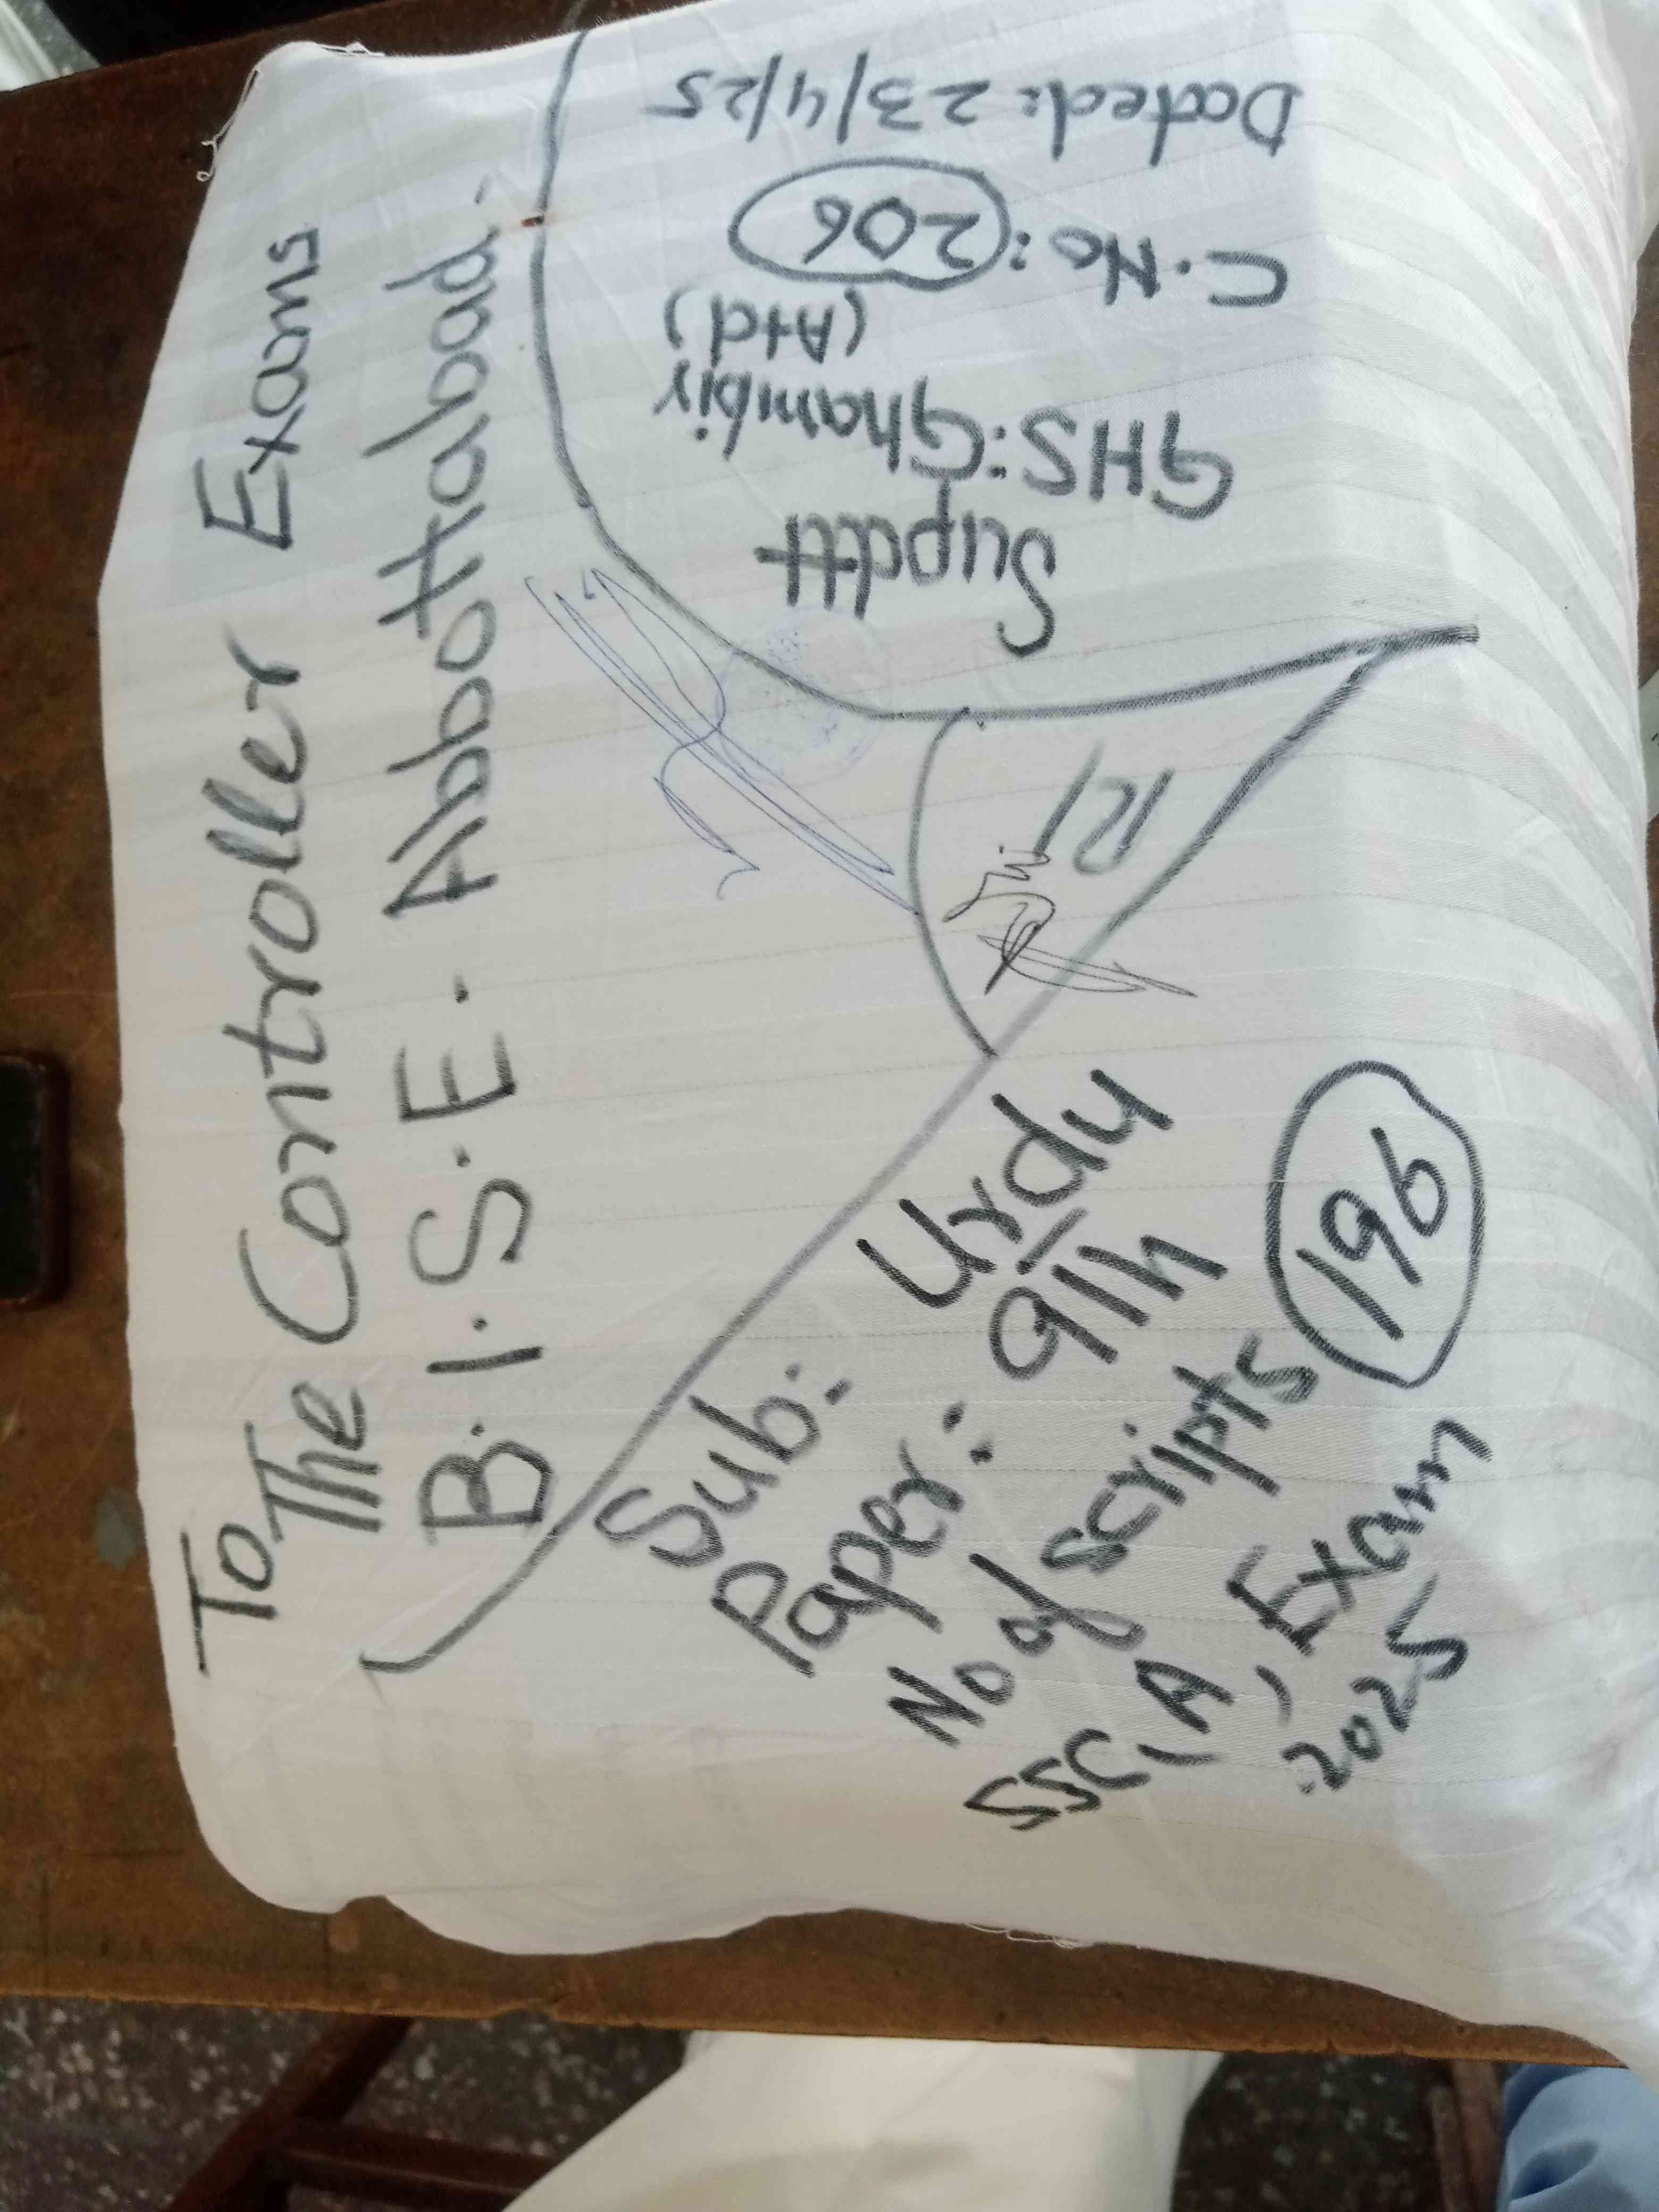 To,
The Controller Exams
B.I.S.E. Abbottabad.
Sub: Urdu
Paper: 9th
No of scripts 196
SSC, A, Exam
2025
R/
Supdtt
GHS: Ghambir
(Atd)
C.No: 206
Dated: 23/4/25